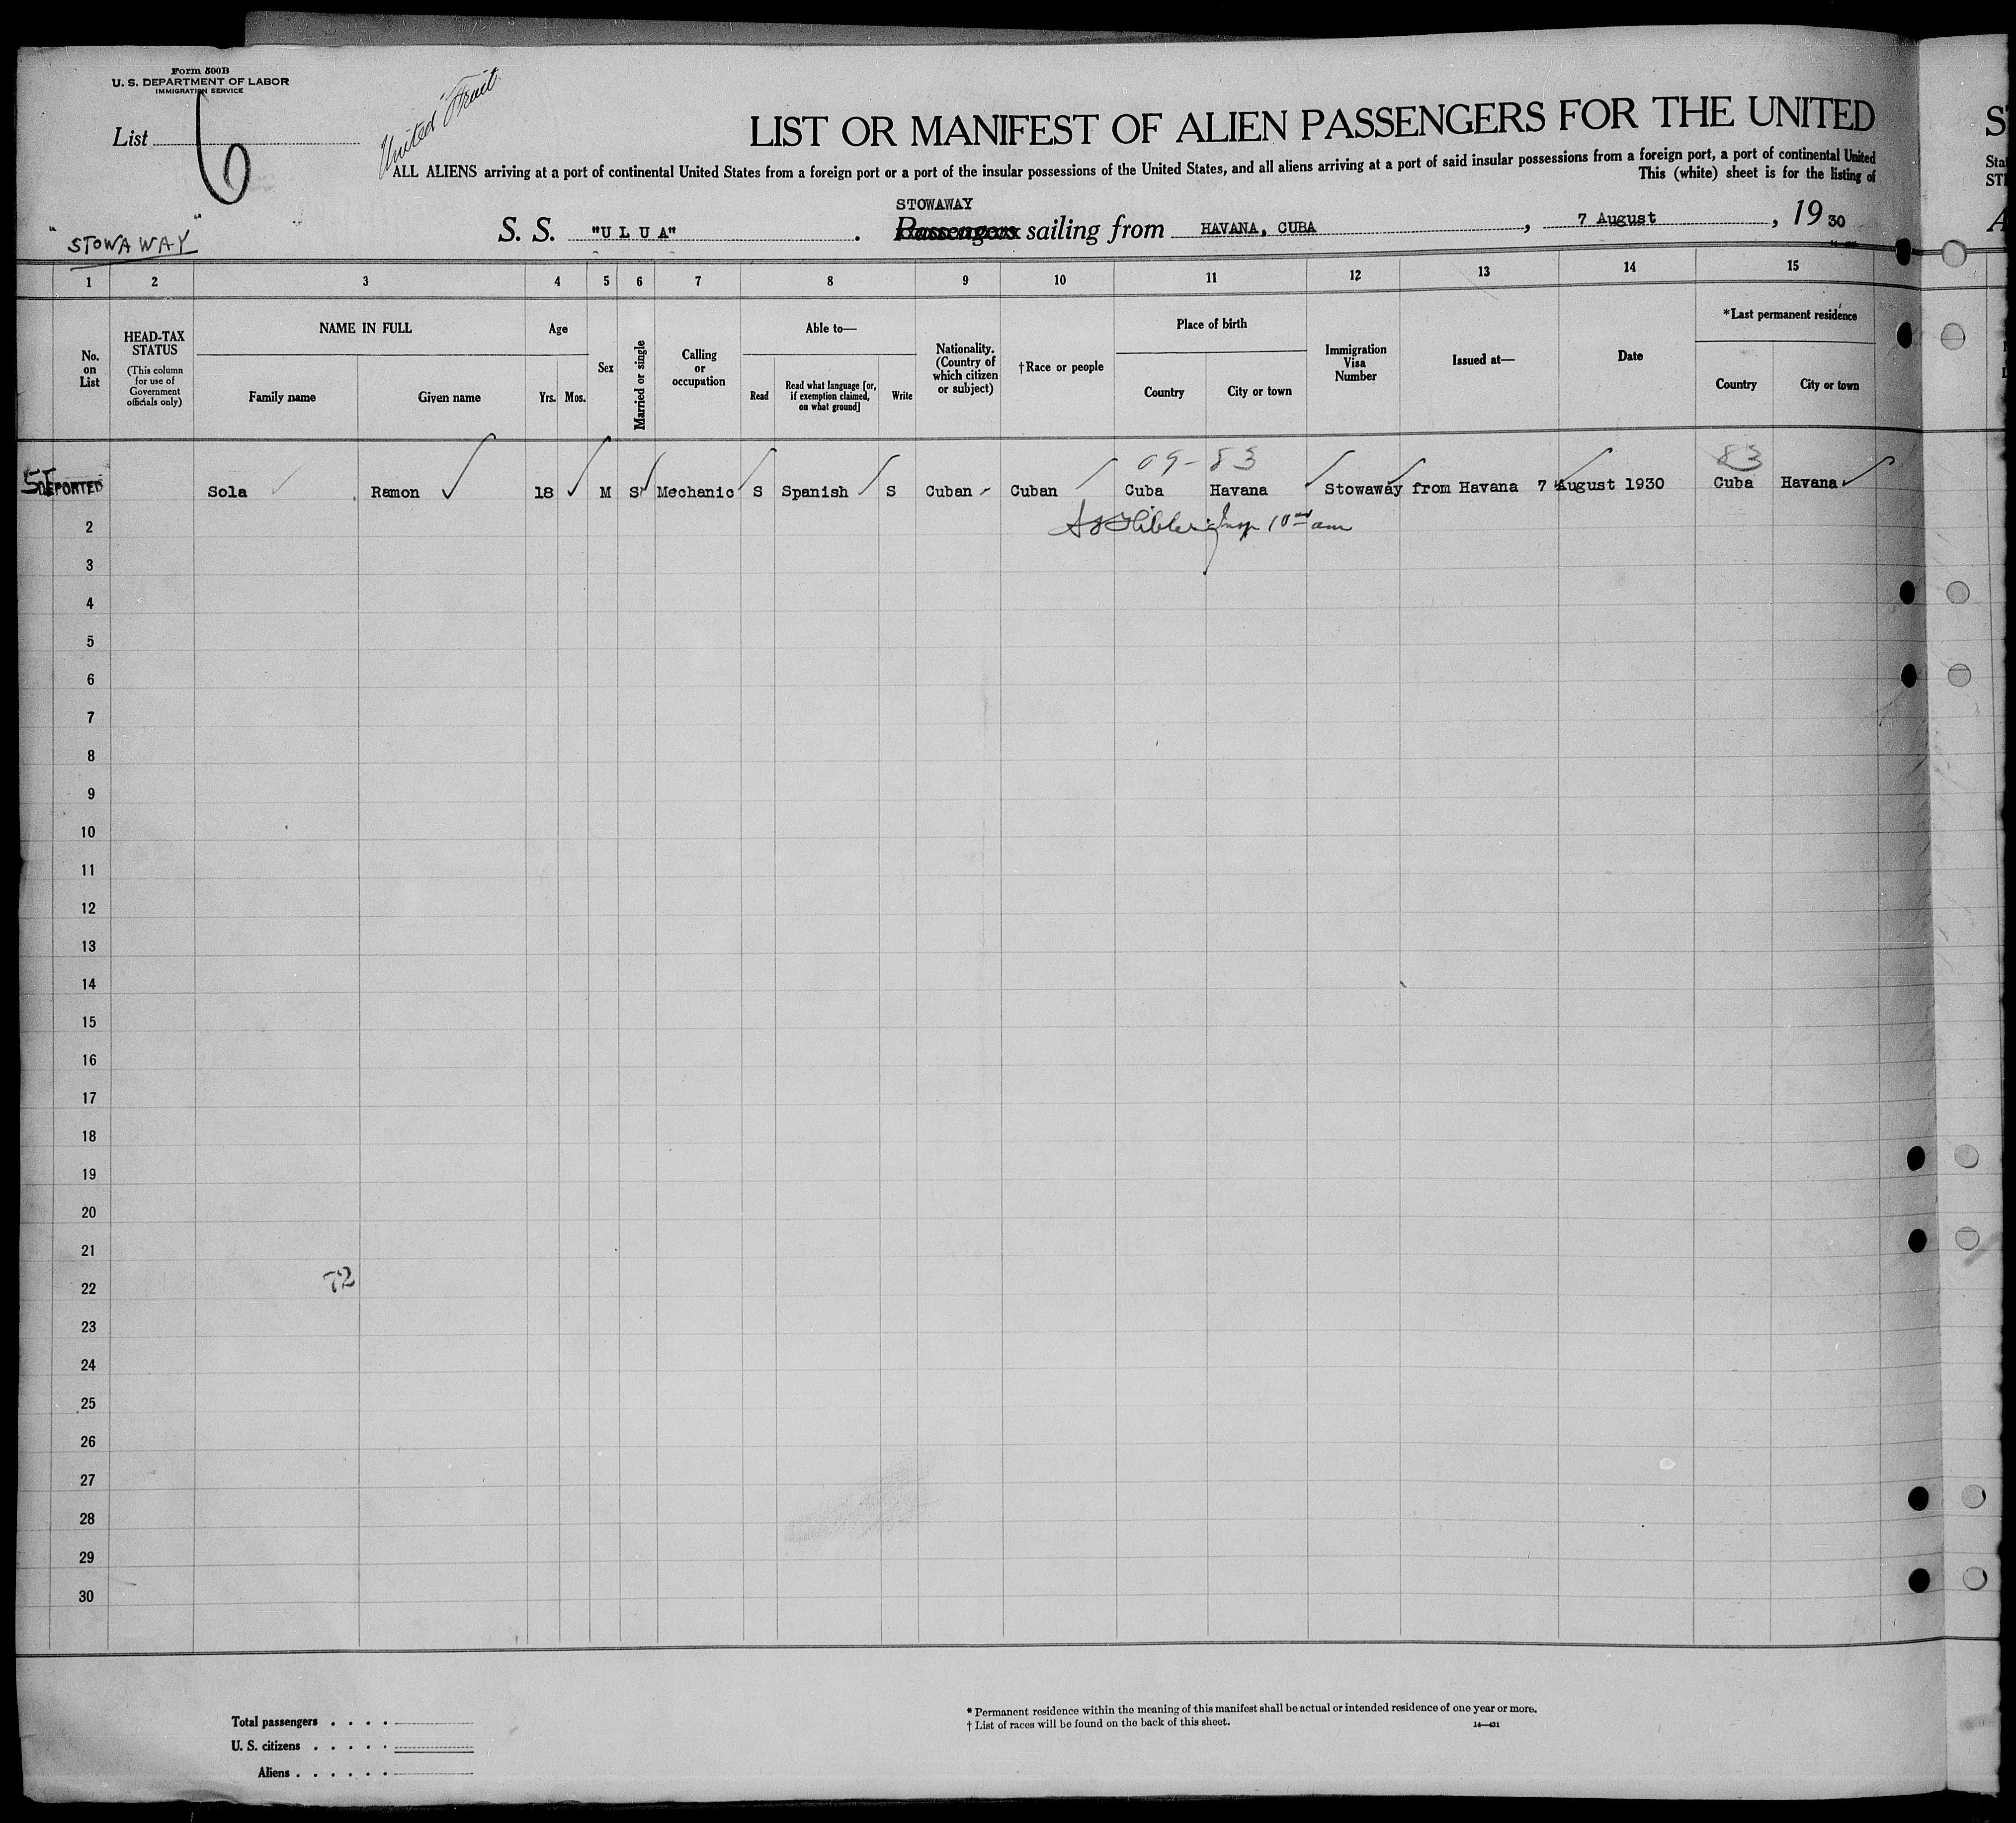 Form 500B
U. S. DEPARTMENT OF LABOR
IMMIGRATION SERVICE
List 6
United Fruit
LIST OR MANIFEST OF ALIEN PASSENGERS FOR THE UNITED
ALL ALIENS arriving at a port of continental United States from a foreign port or a port of the insular possessions of the United States, and all aliens arriving at a port of said insular possessions from a foreign port, a port of continental United
This (white) sheet is for the listing of
"STOWAWAY"
STOWAWAY
S. S. "U L U A". Passengers sailing from HAVANA, CUBA, 7 August, 19 30
1 2 3 4 5 6 7 8 9 10 11 12 13 14 15
No. on List
HEAD-TAX STATUS
(This column for use of Government officials only)
NAME IN FULL
Family name Given name
Age
Yrs. Mos.
Sex
Married or single
Calling or occupation
Able to—
Read
Read what language [or, if exemption claimed, on what ground]
Write
Nationality. (Country of which citizen or subject)
†Race or people
Place of birth
Country City or town
Immigration Visa Number
Issued at—
Date
*Last permanent residence
Country City or town
09-83 83
DEPORTED Sola Ramon 18 M S Mechanic S Spanish S Cuban Cuban Cuba Havana Stowaway from Havana 7 August 1930 Cuba Havana
2
3
4
5
6
7
8
9
10
11
12
13
14
15
16
17
18
19
20
21
72
22
23
24
25
26
27
28
29
30
Total passengers . . . .
U. S. citizens . . . . .
Aliens . . . . . .
* Permanent residence within the meaning of this manifest shall be actual or intended residence of one year or more.
† List of races will be found on the back of this sheet.
14—431